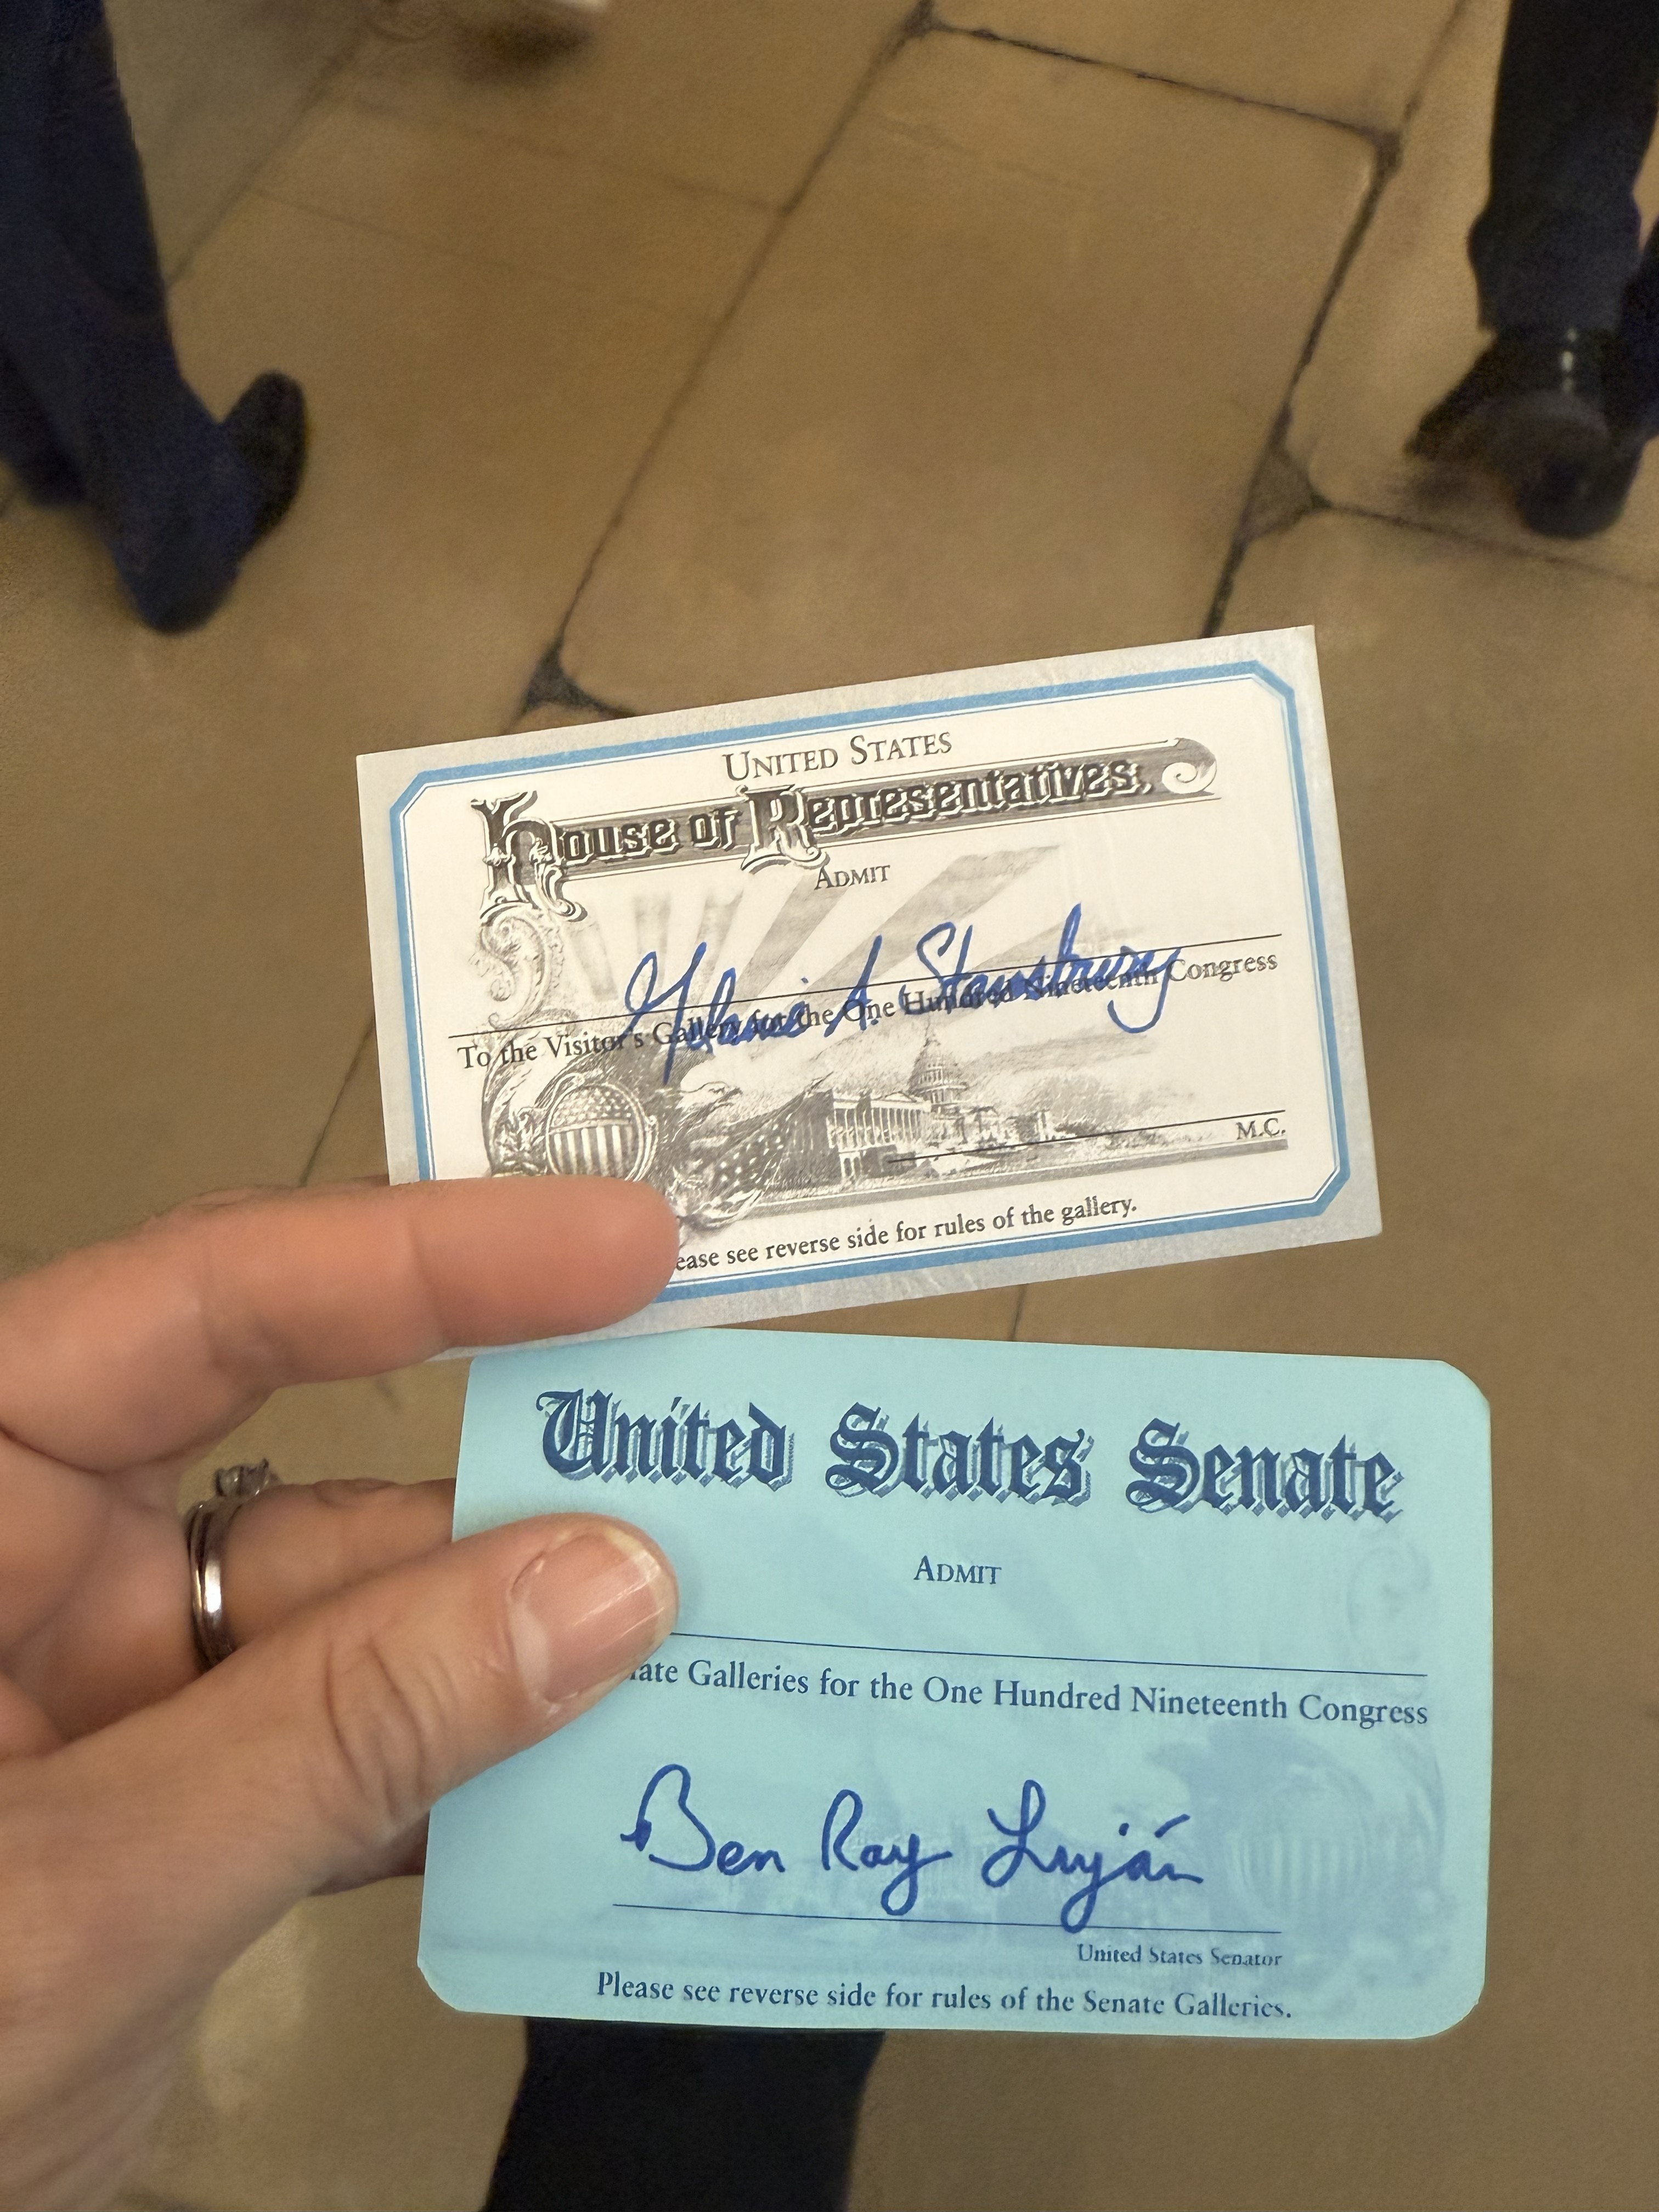 UNITED STATES
House of Representatives,
ADMIT
Melanie A. Stansbury
To the Visitor's Gallery for the One Hundred Nineteenth Congress
M.C.
ease see reverse side for rules of the gallery.
United States Senate
ADMIT
ate Galleries for the One Hundred Nineteenth Congress
Ben Ray Luján
United States Senator
Please see reverse side for rules of the Senate Galleries.